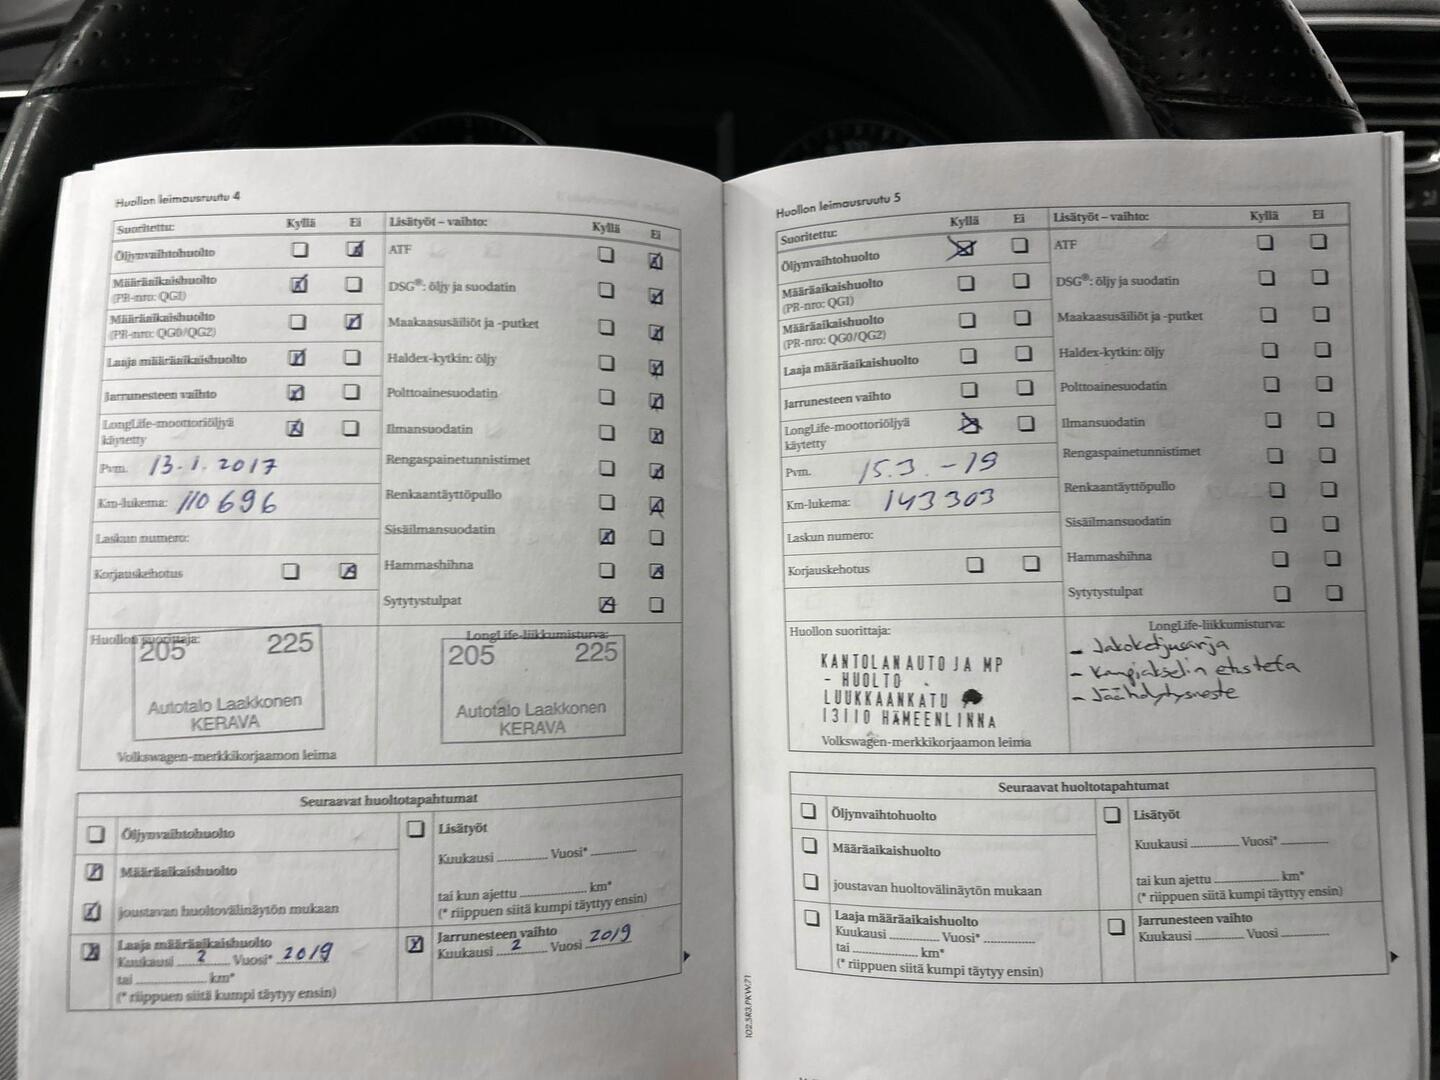 Huollon leimausruutu 4
Suoritettu: Kyllä Ei
Öljynvaihtohuolto
Määräaikaishuolto
(PR-nro: QG1)
Määräaikaishuolto
(PR-nro: QG0/QG2)
Laaja määräaikaishuolto
Jarrunesteen vaihto
LongLife-moottoriöljyä
käytetty
Pvm. 13.1.2017
Km-lukema: 110696
Laskun numero:
Korjauskehotus
Lisätyöt – vaihto: Kyllä Ei
ATF
DSG®: öljy ja suodatin
Maakaasusäiliöt ja -putket
Haldex-kytkin: öljy
Polttoainesuodatin
Ilmansuodatin
Rengaspainetunnistimet
Renkaantäyttöpullo
Sisäilmansuodatin
Hammashihna
Sytytystulpat
Huollon suorittaja:
205 225
Autotalo Laakkonen
KERAVA
Volkswagen-merkkikorjaamon leima
LongLife-liikkumisturva:
205 225
Autotalo Laakkonen
KERAVA
Seuraavat huoltotapahtumat
Öljynvaihtohuolto
Määräaikaishuolto
joustavan huoltovälinäytön mukaan
Laaja määräaikaishuolto
Kuukausi 2 Vuosi* 2019
tai ............ km*
(* riippuen siitä kumpi täytyy ensin)
Lisätyöt
Kuukausi ............ Vuosi* ............
tai kun ajettu ............ km*
(* riippuen siitä kumpi täyttyy ensin)
Jarrunesteen vaihto
Kuukausi 2 Vuosi 2019
Huollon leimausruutu 5
Suoritettu: Kyllä Ei
Öljynvaihtohuolto
Määräaikaishuolto
(PR-nro: QG1)
Määräaikaishuolto
(PR-nro: QG0/QG2)
Laaja määräaikaishuolto
Jarrunesteen vaihto
LongLife-moottoriöljyä
käytetty
Pvm. 15.3.-19
Km-lukema: 143303
Laskun numero:
Korjauskehotus
Lisätyöt – vaihto: Kyllä Ei
ATF
DSG®: öljy ja suodatin
Maakaasusäiliöt ja -putket
Haldex-kytkin: öljy
Polttoainesuodatin
Ilmansuodatin
Rengaspainetunnistimet
Renkaantäyttöpullo
Sisäilmansuodatin
Hammashihna
Sytytystulpat
Huollon suorittaja:
KANTOLAN AUTO JA MP
- HUOLTO
LUUKKAANKATU
13110 HÄMEENLINNA
Volkswagen-merkkikorjaamon leima
LongLife-liikkumisturva:
- Jakoketjusarja
- Kampiakselin etusteta
- Jäähdytysneste
Seuraavat huoltotapahtumat
Öljynvaihtohuolto
Määräaikaishuolto
joustavan huoltovälinäytön mukaan
Laaja määräaikaishuolto
Kuukausi ............ Vuosi* ............
tai ............ km*
(* riippuen siitä kumpi täytyy ensin)
Lisätyöt
Kuukausi ............ Vuosi* ............
tai kun ajettu ............ km*
(* riippuen siitä kumpi täyttyy ensin)
Jarrunesteen vaihto
Kuukausi ............ Vuosi ............
102.5R3.PKW.71